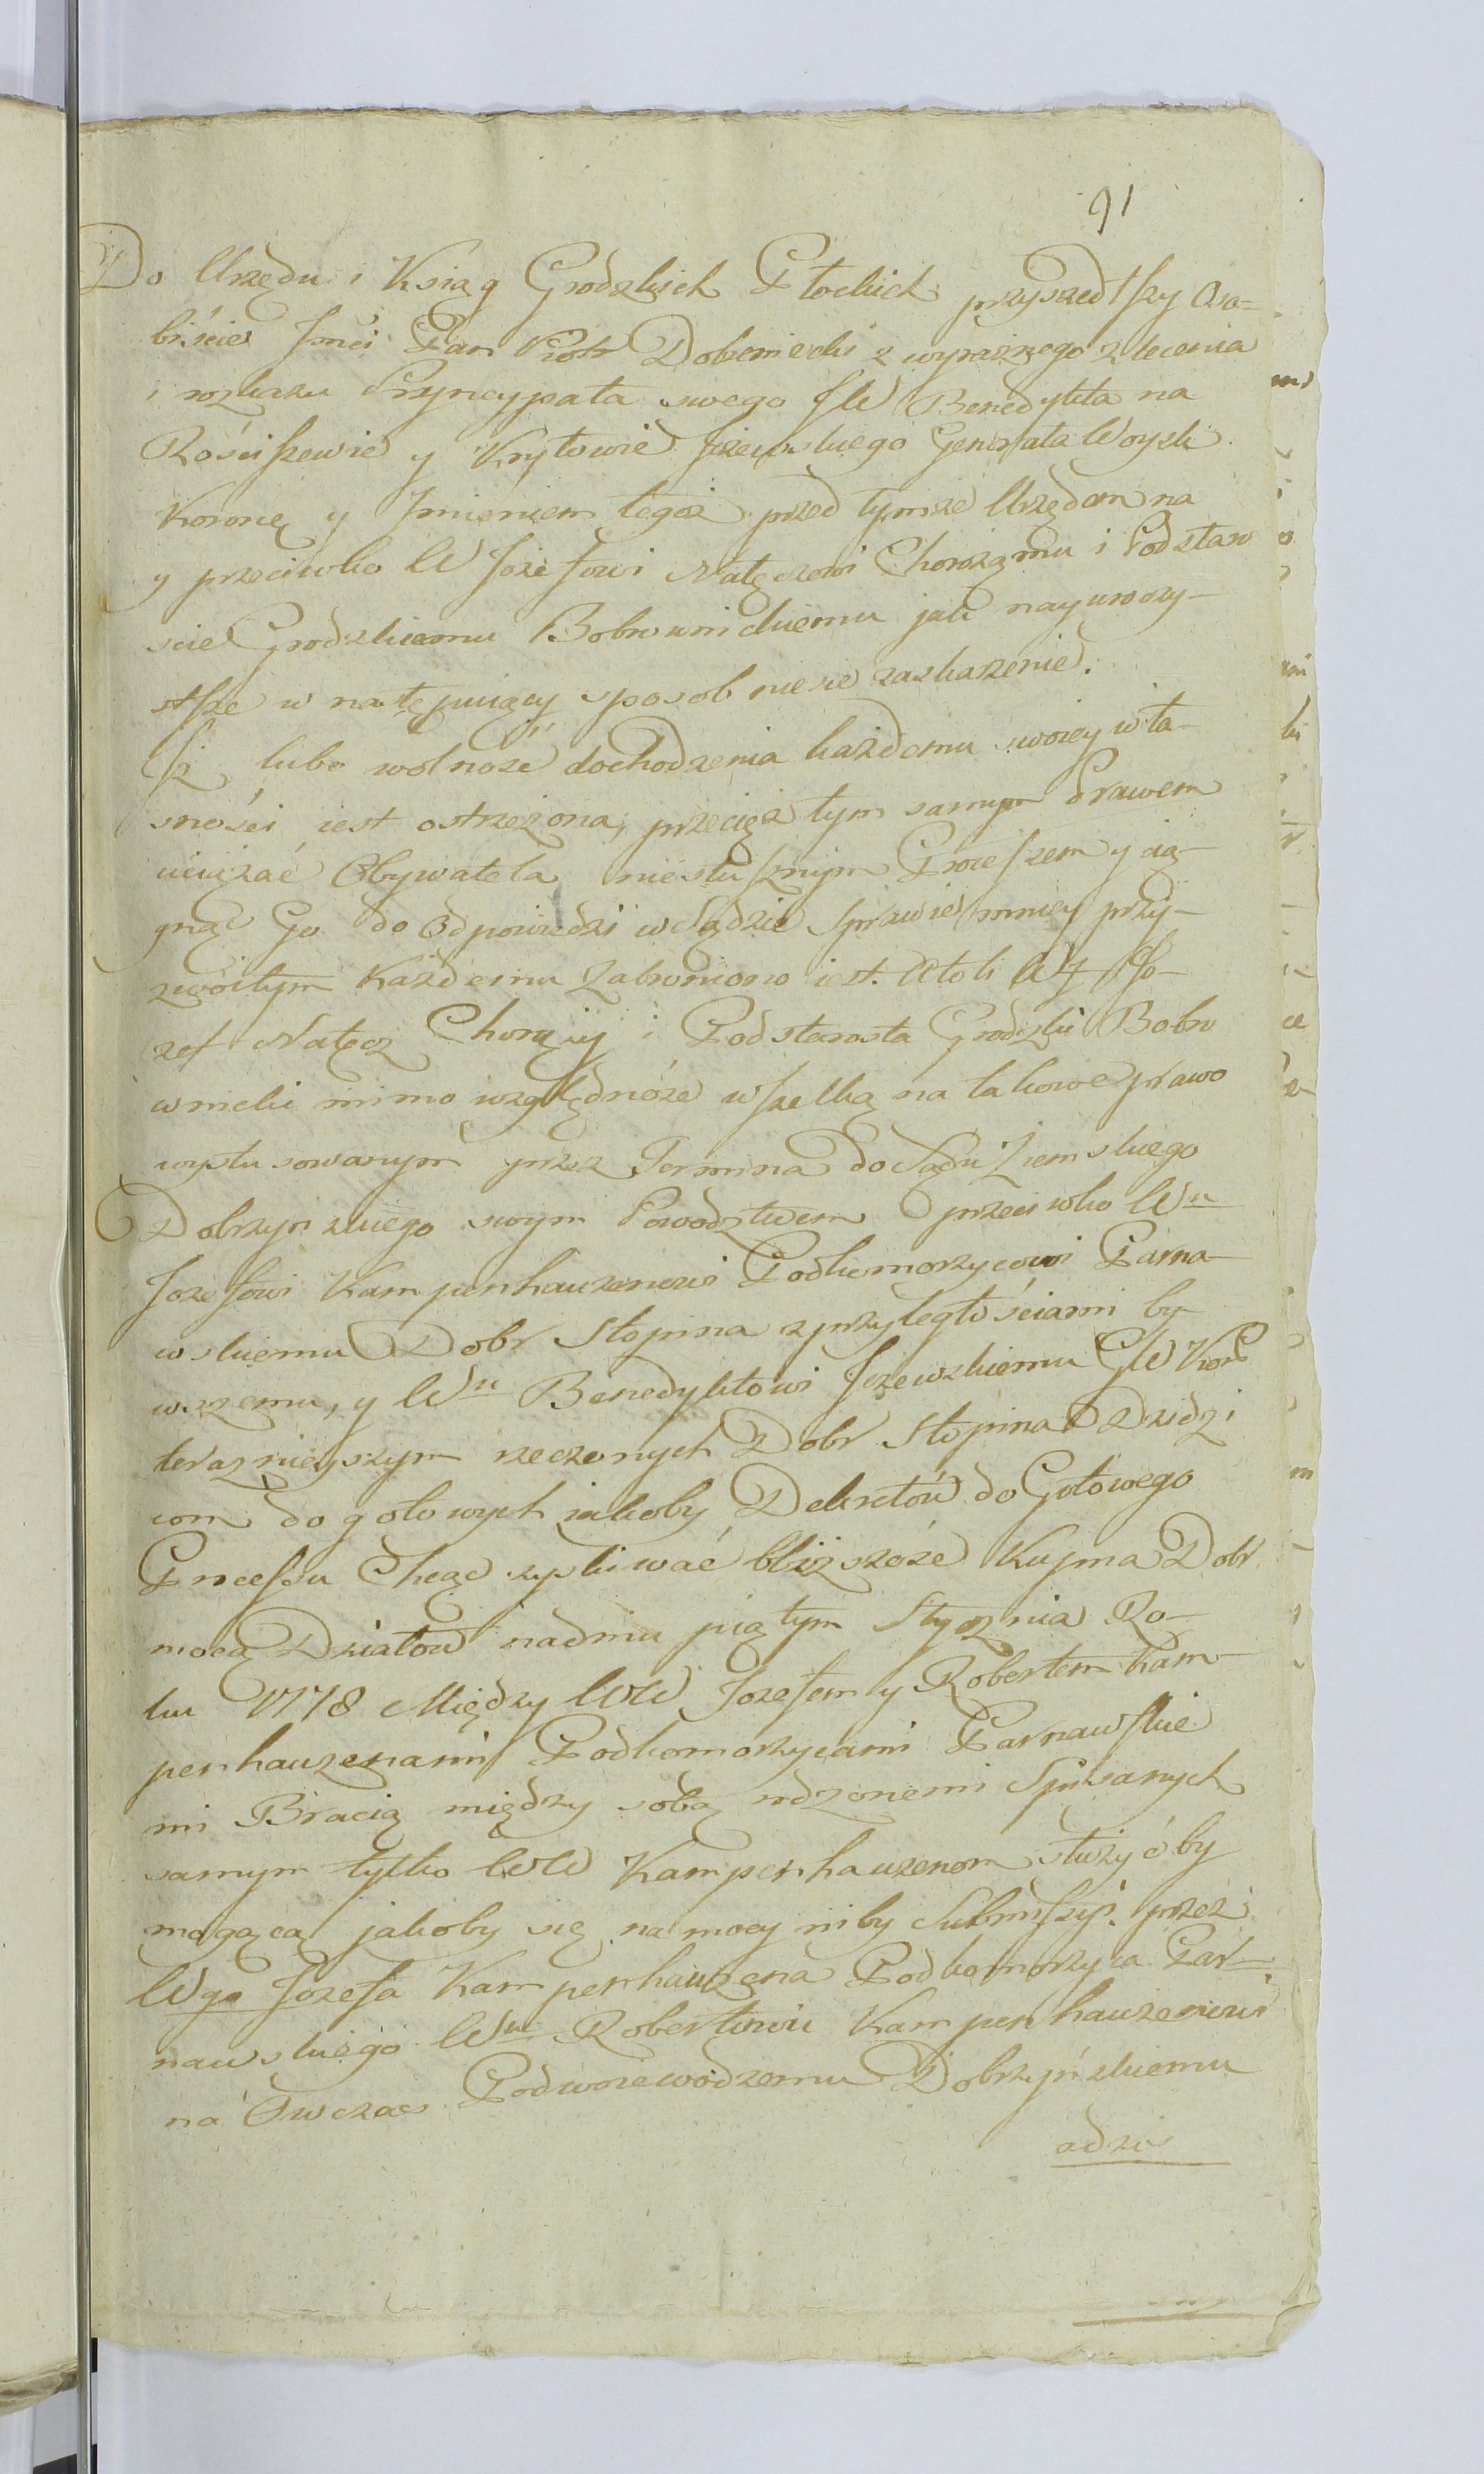 91
Do Urzędu i Ksiąg Grodzkich Płockich przyszedłszy Oso-
biście Jmci Pan Piotr Dobeniecki z wyraznego zlecenia
i rozkazu Pryncypała swego JW Benedykta na
Rościszewie y Kryłowie Jeżewskiego Generała Woysk
Koronę y Jmieniem tegoż przed tymże Urzędem na
y przeciwko W Jozefowi Nałęczowi Chorążmu i Podstaro
scie Grodzkiemu Bobrownickiemu jak nayuroczy-
stsze w nastęmuiący sposob niesie zaskarzenie.
Jż lubo wolnośe dochodzenia każdemu swoiey wła-
sności iest ostrzeżona, przecięż tym samym Prawem
uciążać Obywatela niesłusznym Procesem y cią-
gnąć Go do Odpowiedzi w Sądzie Sprawie mniey przy-
zwoitym Każdemu Zabroniono iest. Atoli WJ Jo-
zef Nałęcz Chorąży i Podstarosta Grodzki Bobro
wnicki mimo względnośe wszelką na takowe prawo
wystusowanym przez Termina do Sądu Ziemskiego
Dobrzynskiego swym Powodztwem przeciwko Wu
Jozefowi Kampenhauzenowi Podkomorzycowi Parna-
wskiemu Dobr Stopina z przyległościami by-
wszemu, y Wu Benedyktowi Jeżewskiemu GW Kor
teraznieyszym rzeczonych Dobr Stopina Dzidzi
com do gołowych jakoby Dekretów do Gotowego
Procesu Chcąc zyskiwać bliższośe Kupna Dobr
mocą Działow nadniu piątym Stycznia Ro-
ku 1778 Między WW Jozefem y Robertem Kam-
penhauzenami Podkomorzycami Parnawskie
mi Bracią między sobą rdzonemi Spisanych
samym tylko WW Kampenhauzenom służyć by
mogąca jakoby się na mocy niby Submiszyi przez
Wgo Jozefa Kampenhauzena Podkomorzyca Par-
nawskiego Wu Robertowi Kampenhauzenowi
na Owczas Podwoiewodzemu Dobrzyńskiemu
adzis